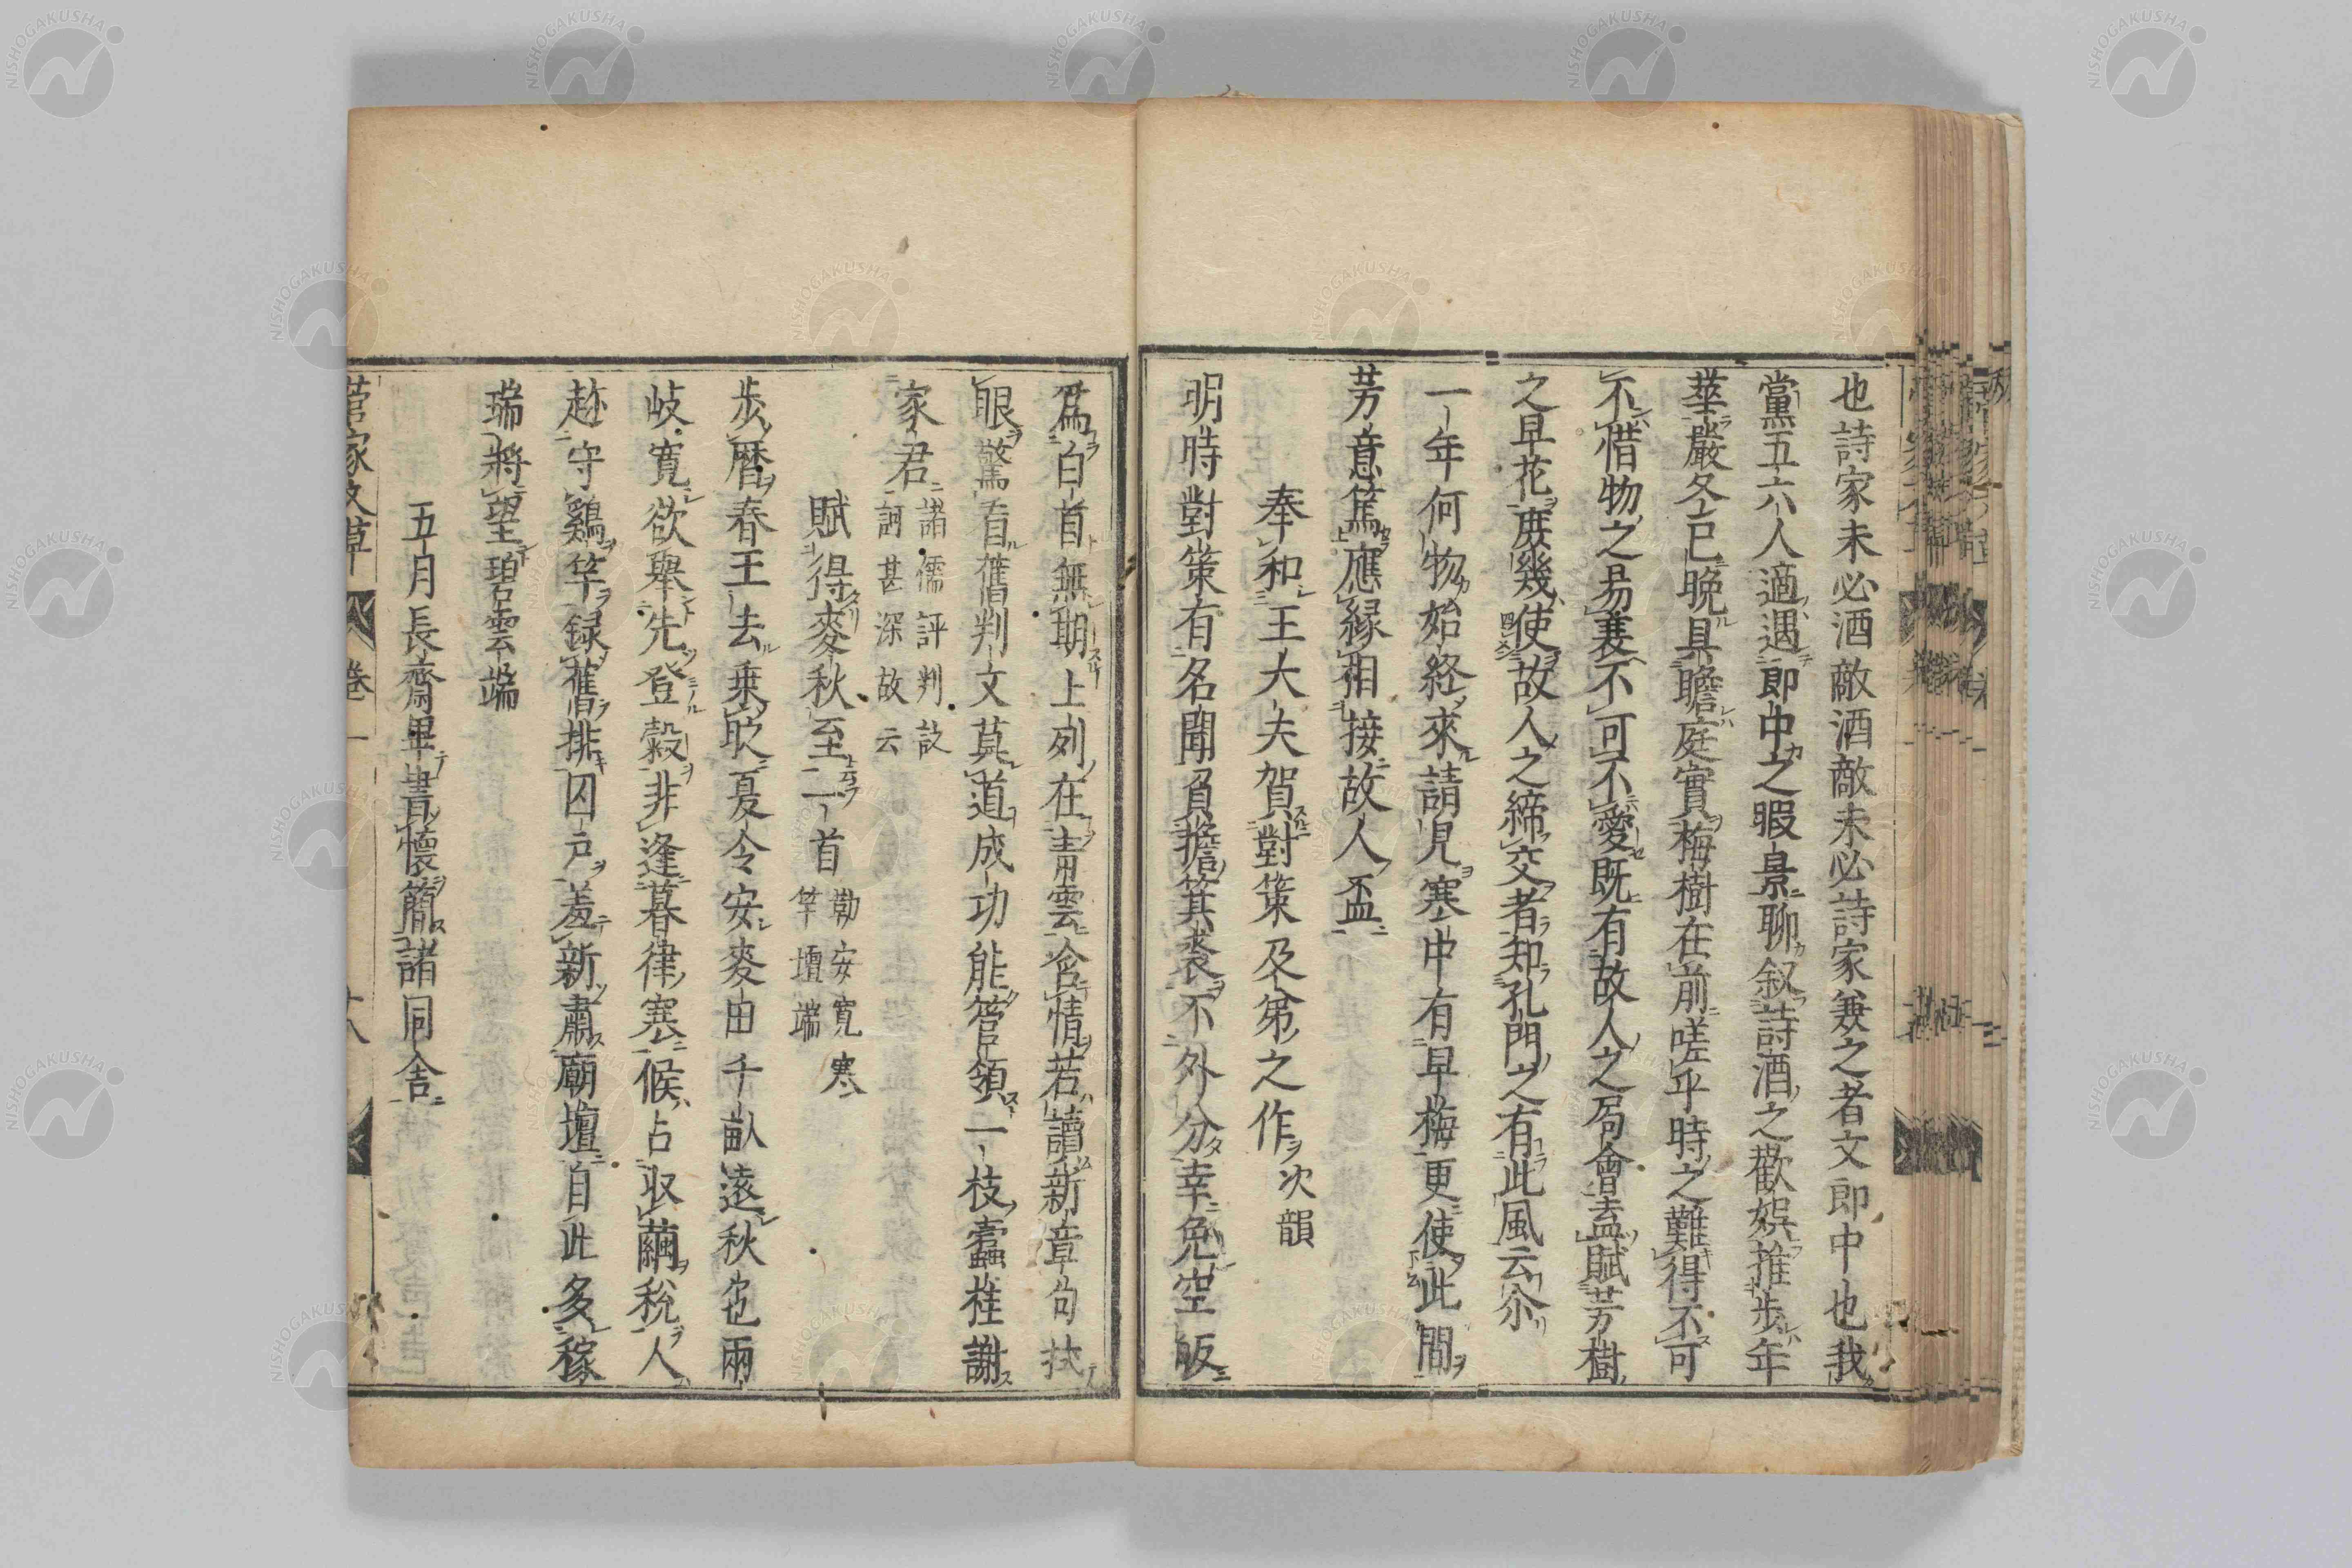 也詩家未必酒敵酒敵未必詩家兼之者文郎中也我
黨五六人適遇郎中之暇景聊叙詩酒之歡娯推歩年
華嚴冬已晩具瞻庭實梅樹在前嗟乎時之難得不可
不惜物之易衰不可不愛既有故人之局會盍賦芳樹
之早花庶幾使故人之締交者知孔門之有此風云尒
一年何物始終來請見寒中有早梅更使此間
芳意篤應縁相接故人盃
奉和王大夫賀對策及第之作次韻
明時對策有名聞負擔箕裘不外分幸免空皈
爲白首無期上列在青雲含情若讀新章句抆
眼驚看舊判文莫道成功能管領一枝蠧桂謝
家君諸儒評判
訶甚深故云
賦得麥秋至一首勒安寛寒
竿壇端
歩暦春王去乗取夏令安麥由千畝遠秋色兩
岐寛欲擧先登穀非逢暮律寒候占取繭稅人
赴守鷄竿録舊排囚戸羞新肅廟壇自此多稼
瑞將望碧雲端
五月長齋畢書懷簡諸同舎
菅家文草 卷一 十八
NISHOGAKUSHA